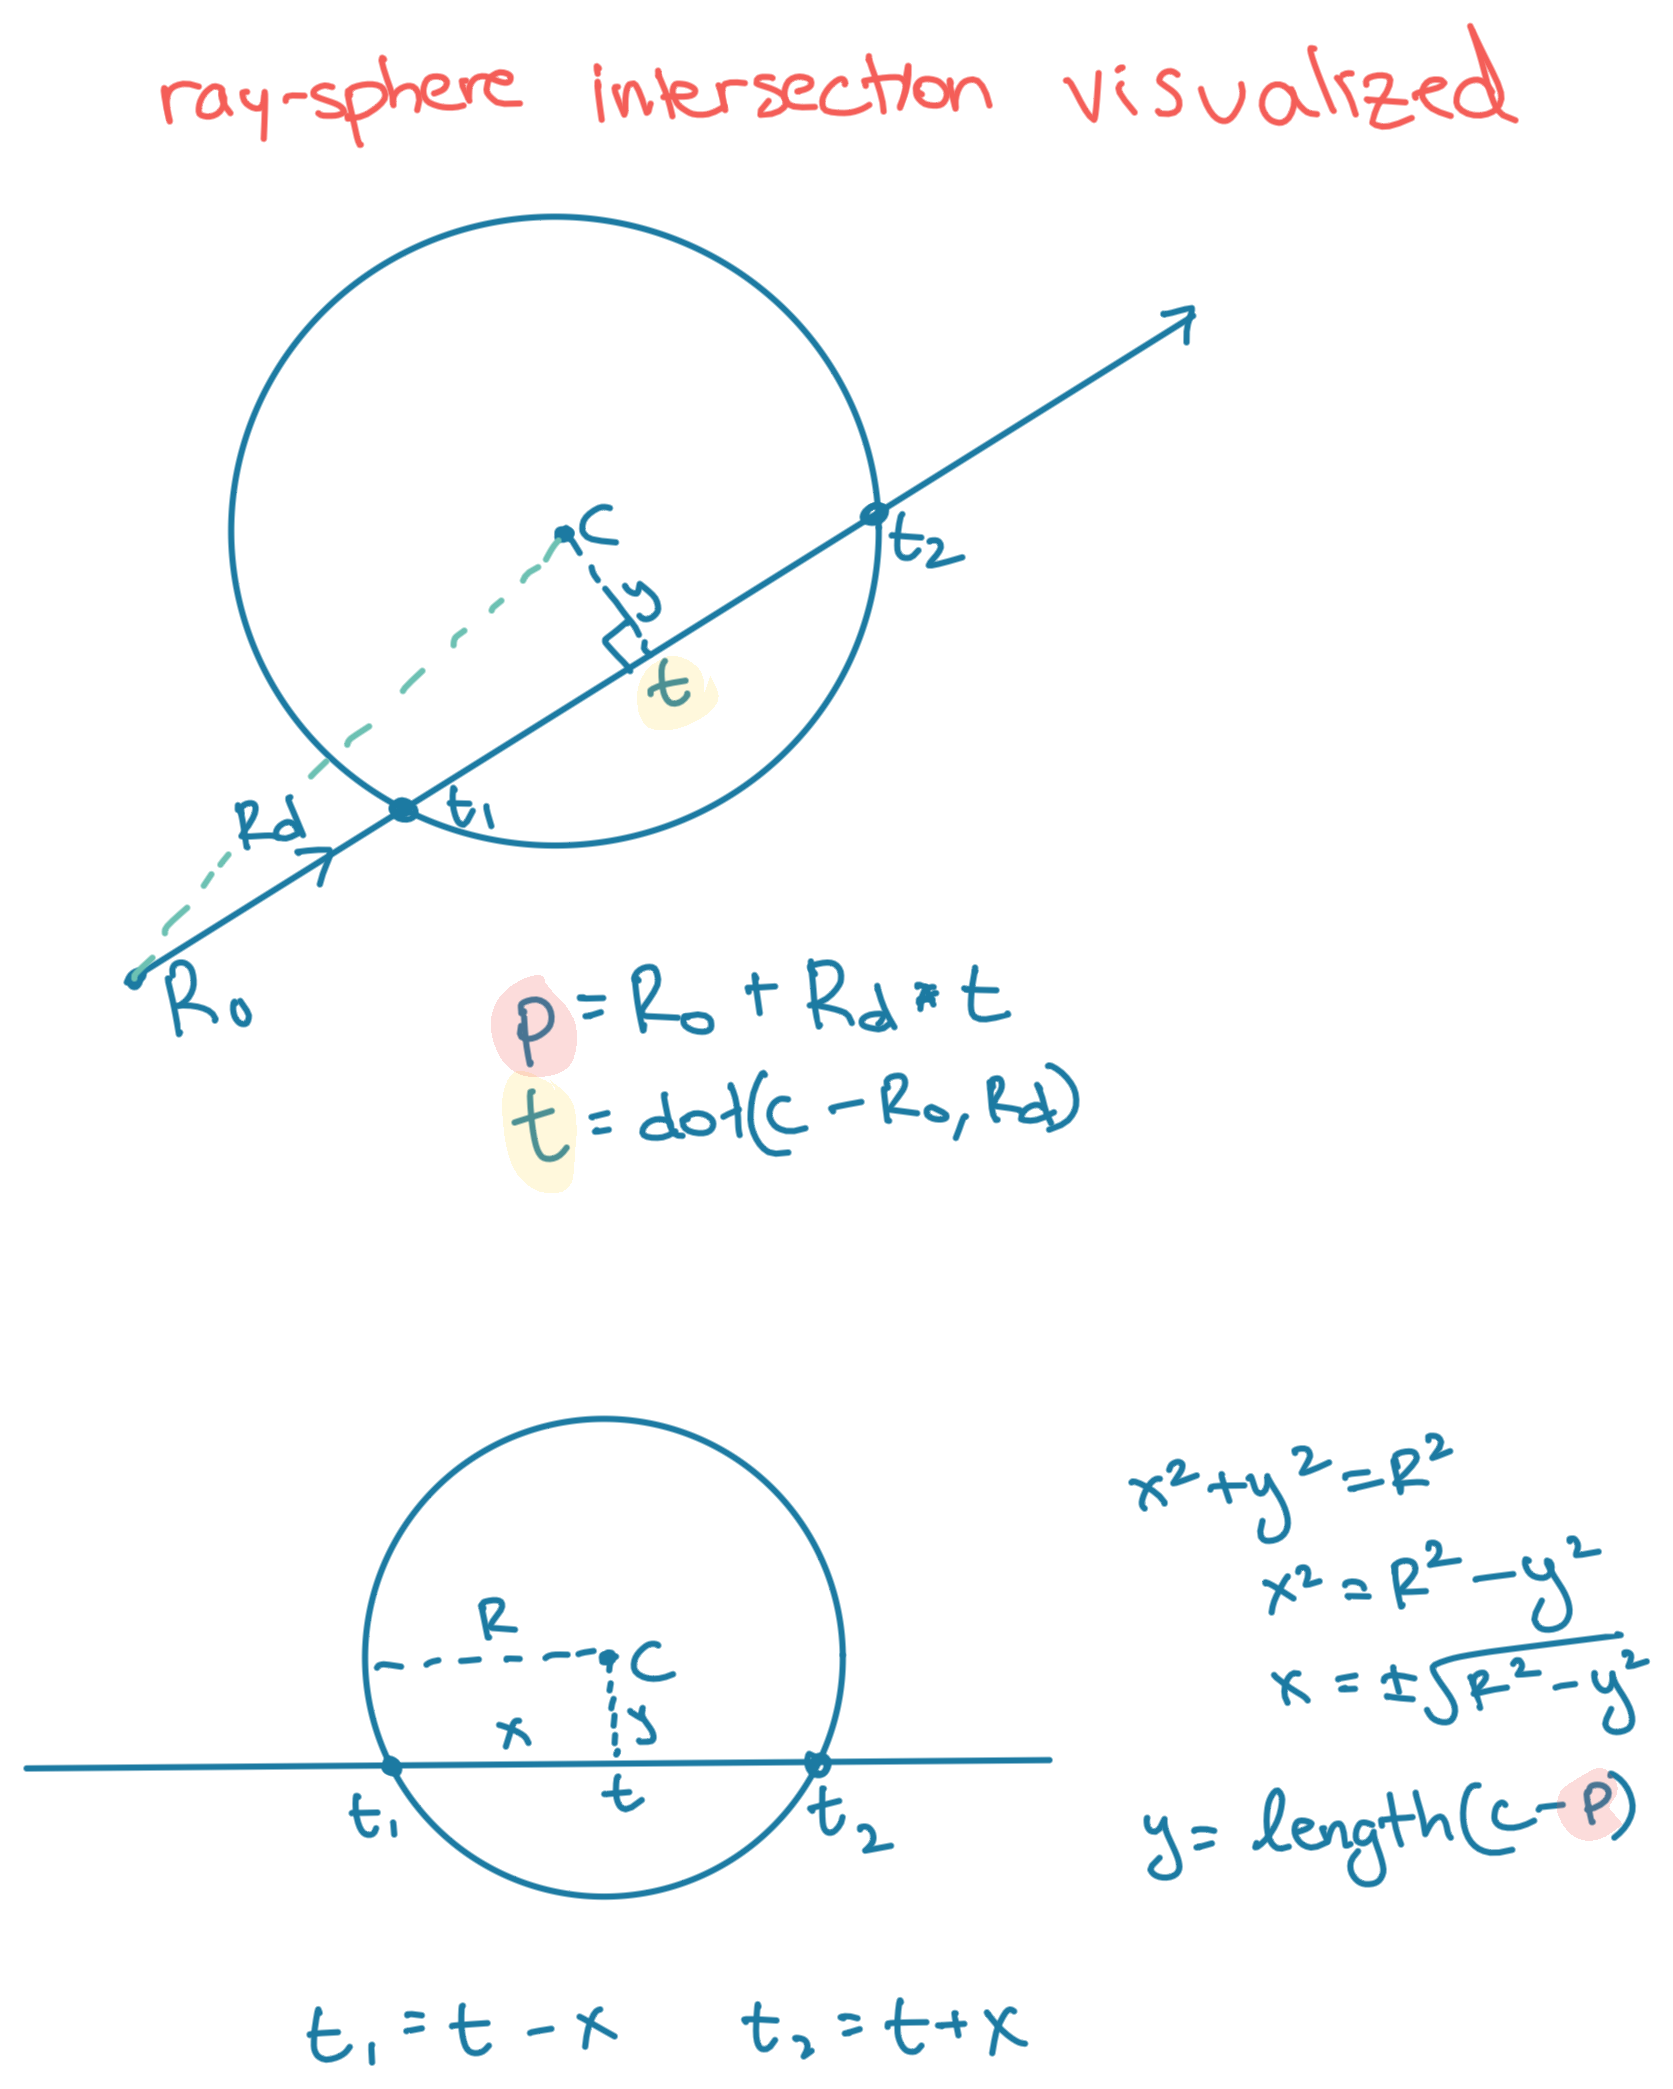 ray-sphere intersection visualized
C
y
t₂
t
t₁
Rd
R₀
p = R₀ + Rd * t
t = dot(C - R₀, Rd)
R
C
x
y
t₁
t
t₂
x² + y² = R²
x² = R² - y²
x = ±√R² - y²
y = length(C - P)
t₁ = t - x
t₂ = t + x